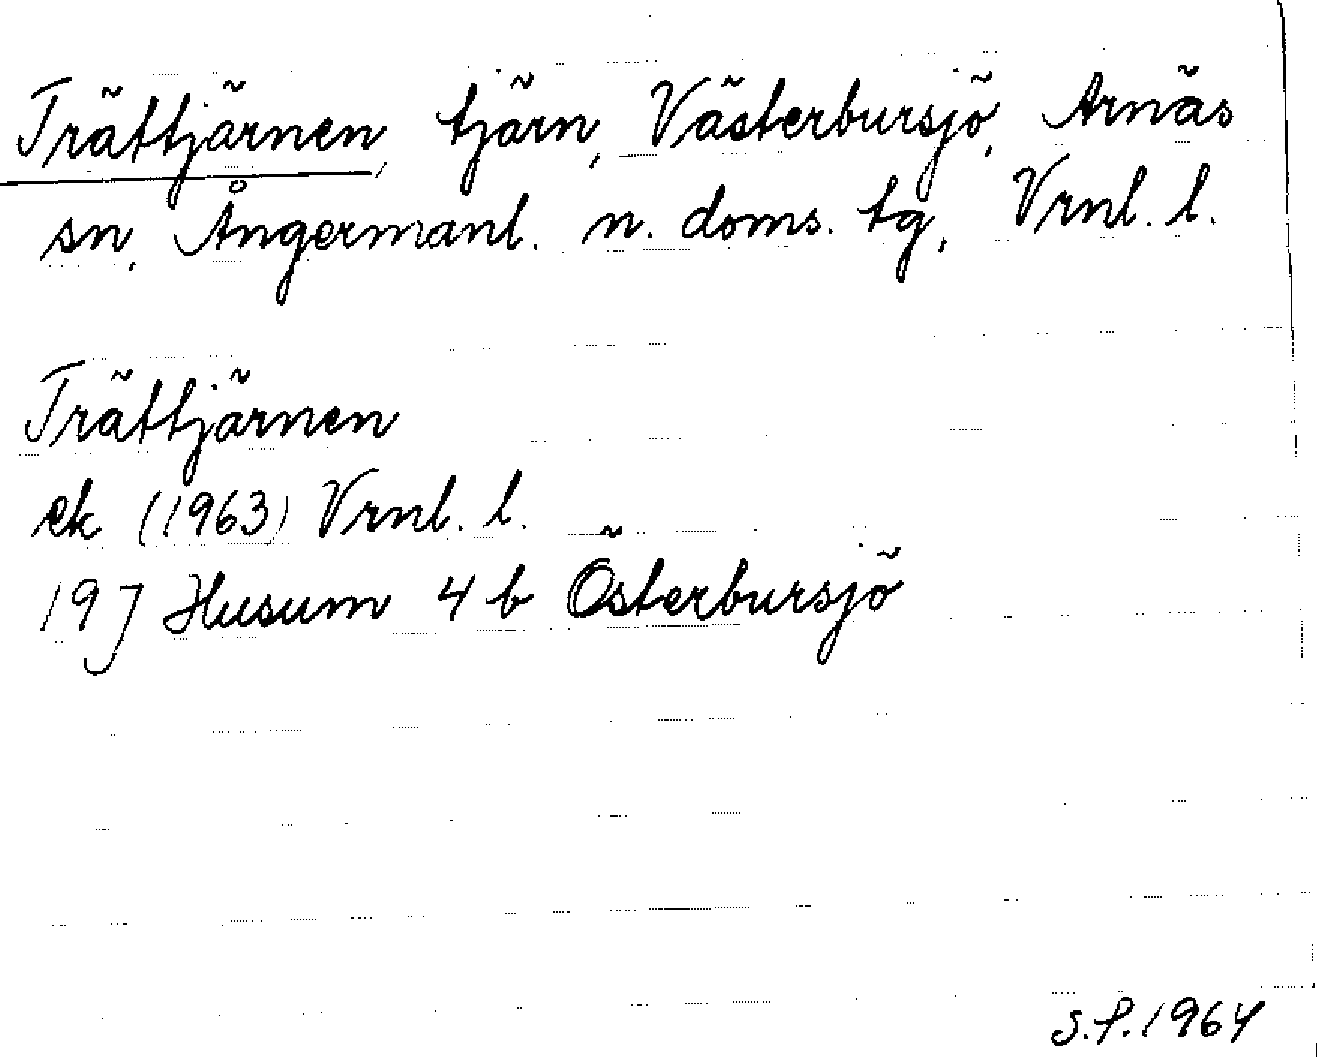 Trättjärnen, tjärn, Västerbursjö, Arnäs
sn, Ångermanl. n. doms. tg, Vrnl. l.
Trättjärnen
ek (1963) Vrnl. l.
19J Husum 4 b Österbursjö
S.P. 1964